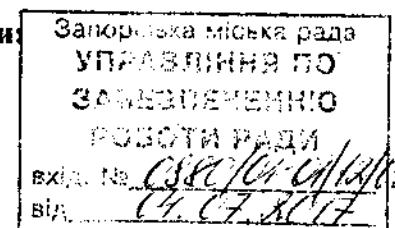 и:
Запорізька міська рада
УПРАВЛІННЯ ПО
ЗАБЕЗПЕЧЕННЮ
РОБОТИ РАДИ
вхід. №
від 04.07.2017